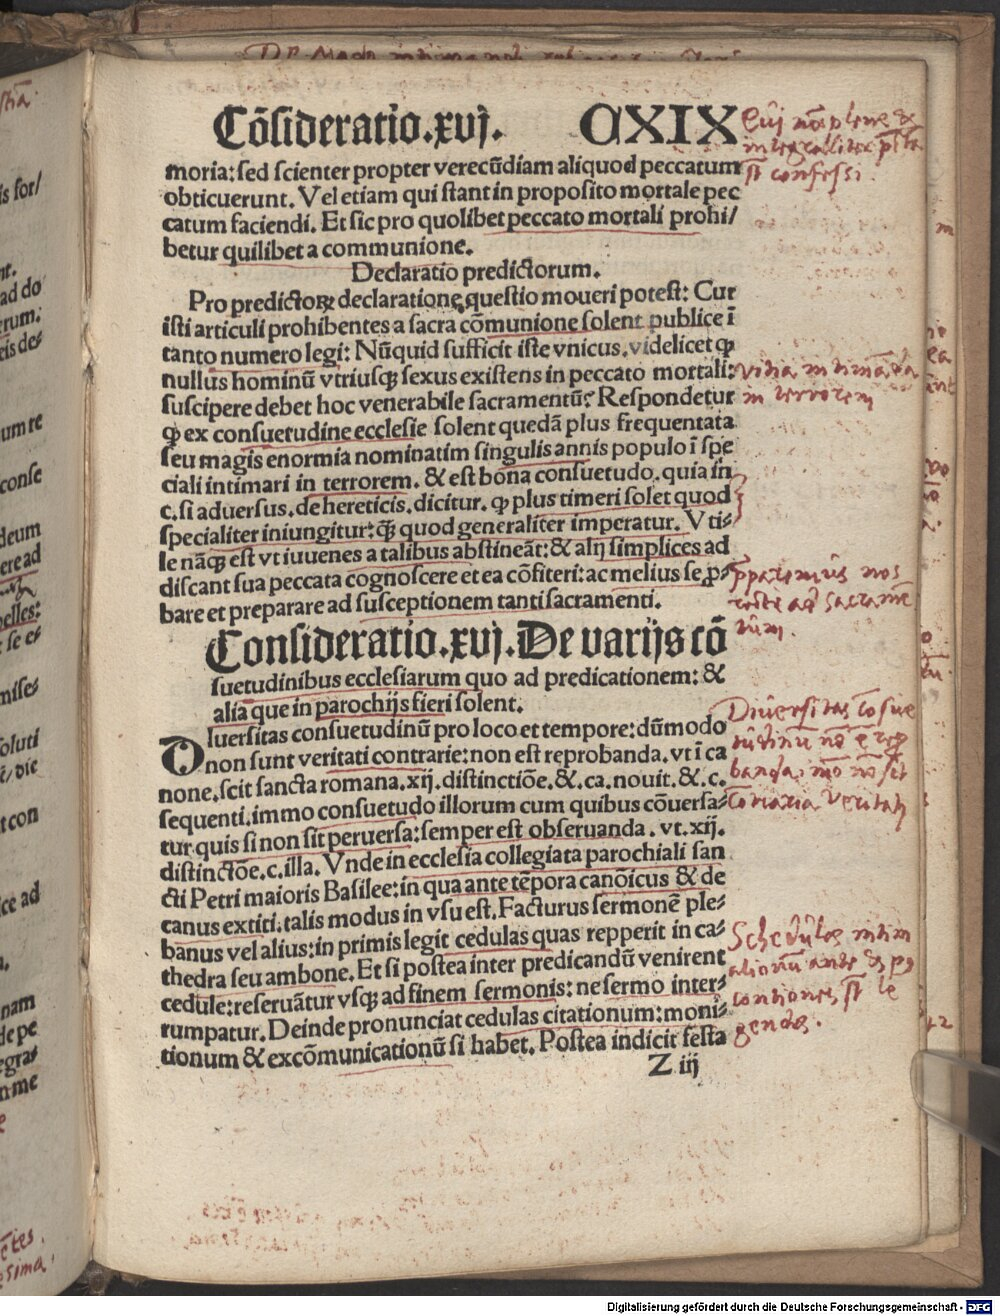 Cōsideratio.xvj. CXIX
moria: sed scienter propter verecūdiam aliquod peccatum
obticuerunt. Vel etiam qui stant in proposito mortale pec
catum faciendi. Et sic pro quolibet peccato mortali prohi/
betur quilibet a communione.
Declaratio predictorum.
Pro predictoꝝ declaratione questio moueri potest: Cur
isti articuli prohibentes a sacra cōmunione solent publice ī
tanto numero legi: Nūquid sufficit iste vnicus. videlicet ꝙ
nullus hominū vtriusqꝫ sexus existens in peccato mortali:
suscipere debet hoc venerabile sacramentū? Respondetur
ꝙ ex consuetudine ecclesie solent quedā plus frequentata
seu magis enormia nominatim singulis annis populo ī spe
ciali intimari in terrorem. & est bona consuetudo. quia in
c. si aduersus. de hereticis. dicitur. ꝙ plus timeri solet quod
specialiter iniungitur: qꝫ̄ quod generaliter imperatur. Vti⸗
le nāqꝫ est vt iuuenes a talibus abstineāt: & alij simplices ad
discant sua peccata cognoscere et ea cōfiteri: ac melius se ꝓ⸗
bare et preparare ad susceptionem tanti sacramenti.
Consideratio.xvj. De varijs cō
suetudinibus ecclesiarum quo ad predicationem: &
alia que in parochijs fieri solent.
Diuersitas consuetudinū pro loco et tempore: dūmodo
non sunt veritati contrarie: non est reprobanda. vt ī ca
none. scit sancta romana. xij. distinctiōe. &. ca. nouit. &. c.
sequenti. immo consuetudo illorum cum quibus cōuersa⸗
tur quis si non sit peruersa: semper est obseruanda. vt. xij.
distinctōe. c. illa. Vnde in ecclesia collegiata parochiali san
cti Petri maioris Basilee: in qua ante tēpora canōicus & de
canus extiti. talis modus in vsu est. Facturus sermonē ple⸗
banus vel alius: in primis legit cedulas quas repperit in ca⸗
thedra seu ambone. Et si postea inter predicandū venirent
cedule: reseruātur vsqꝫ ad finem sermonis: ne sermo inter⸗
rumpatur. Deinde pronunciat cedulas citationum: moni⸗
tionum & excōmunicationū si habet. Postea indicit festa
Z iij
confessi.
in terrorem
nos
Diuersitas
veritati
Schedulas intim
Digitalisierung gefördert durch die Deutsche Forschungsgemeinschaft - DFG